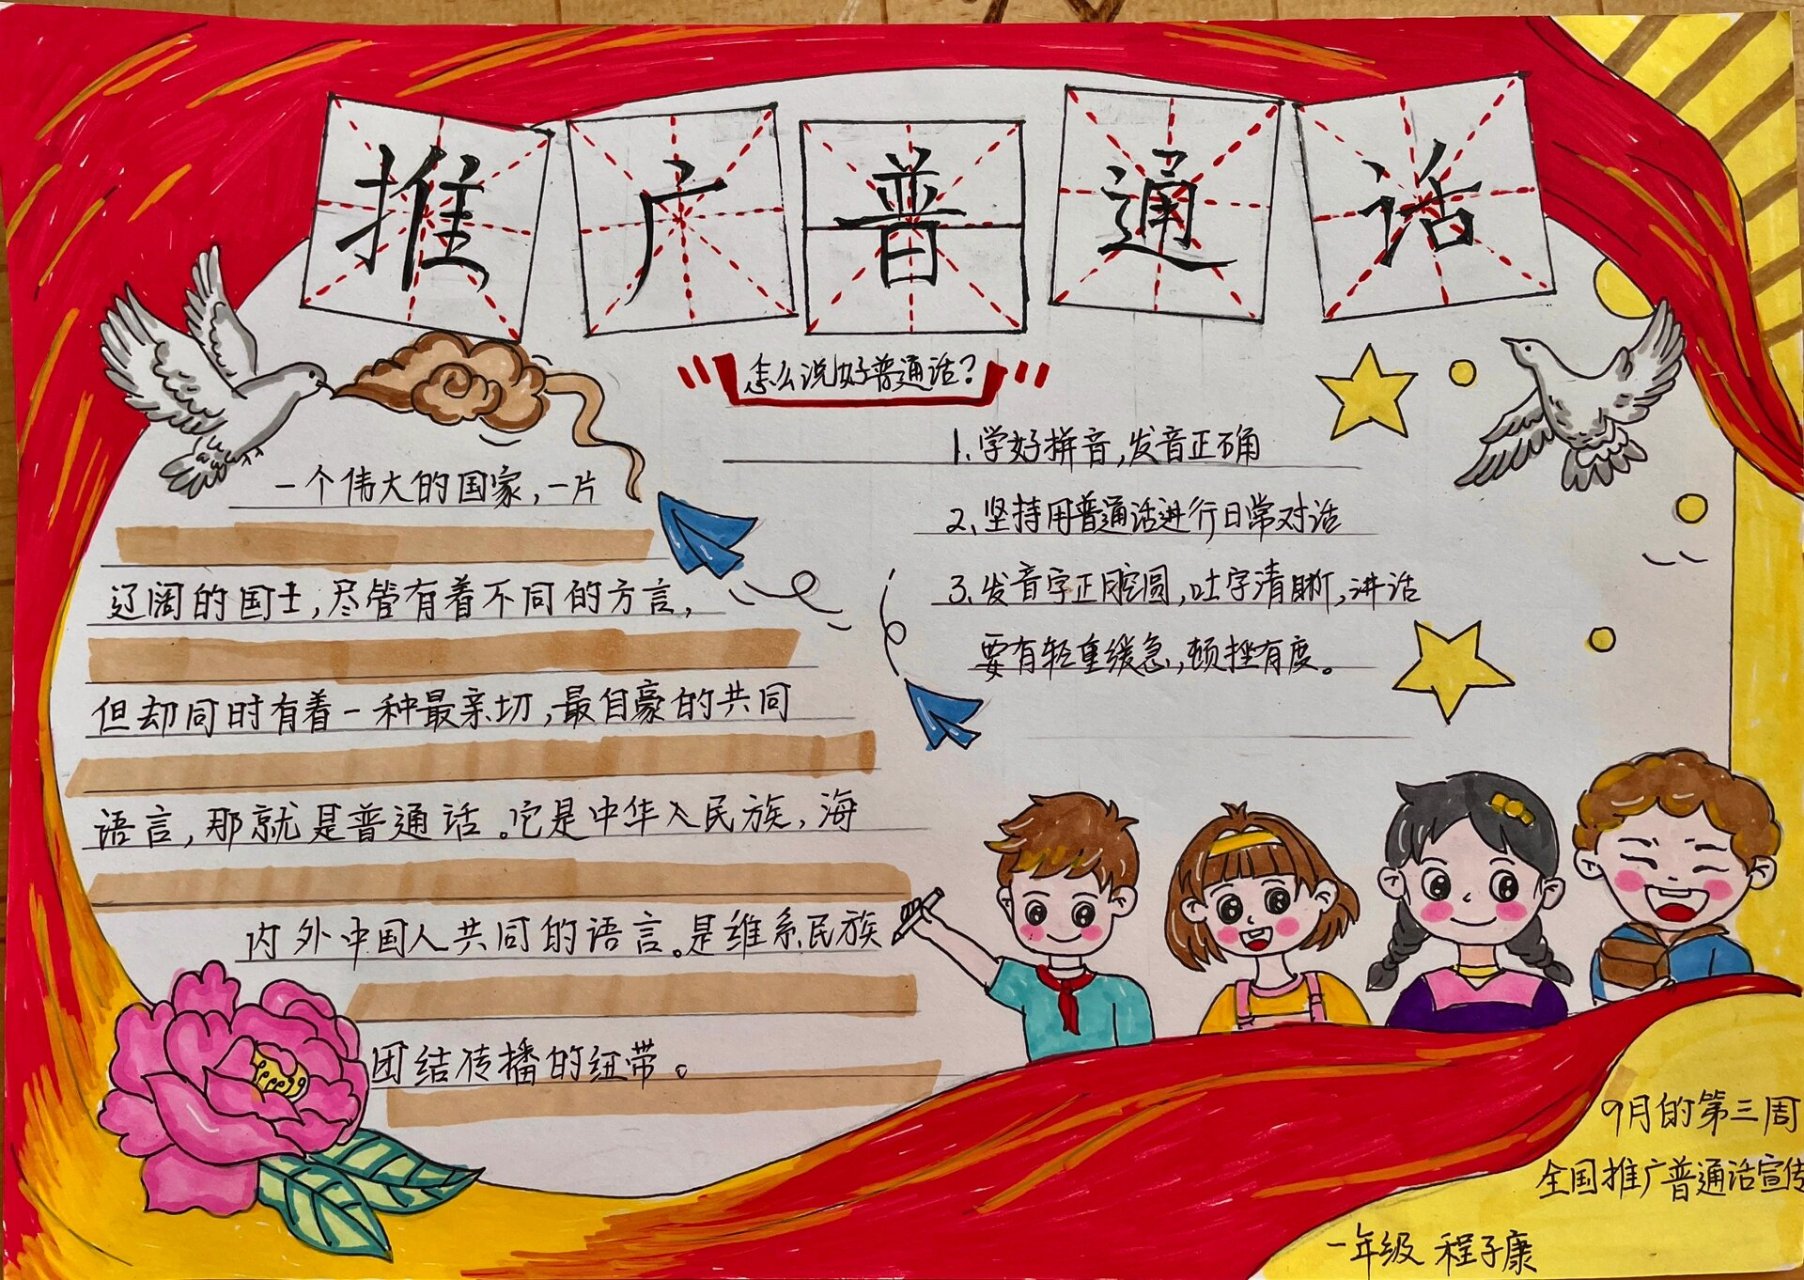 推广普通话
怎么说好普通话？
一个伟大的国家，一片
辽阔的国土，尽管有着不同的方言，
但却同时有着一种最亲切，最自豪的共同
语言，那就是普通话。它是中华人民族，海
内外中国人共同的语言。是维系民族
团结传播的纽带。
1、学好拼音，发音正确
2、坚持用普通话进行日常对话
3、发音字正腔圆，吐字清晰，讲话
要有轻重缓急，顿挫有度。
9月的第三周
全国推广普通话宣传
一年级 程子康